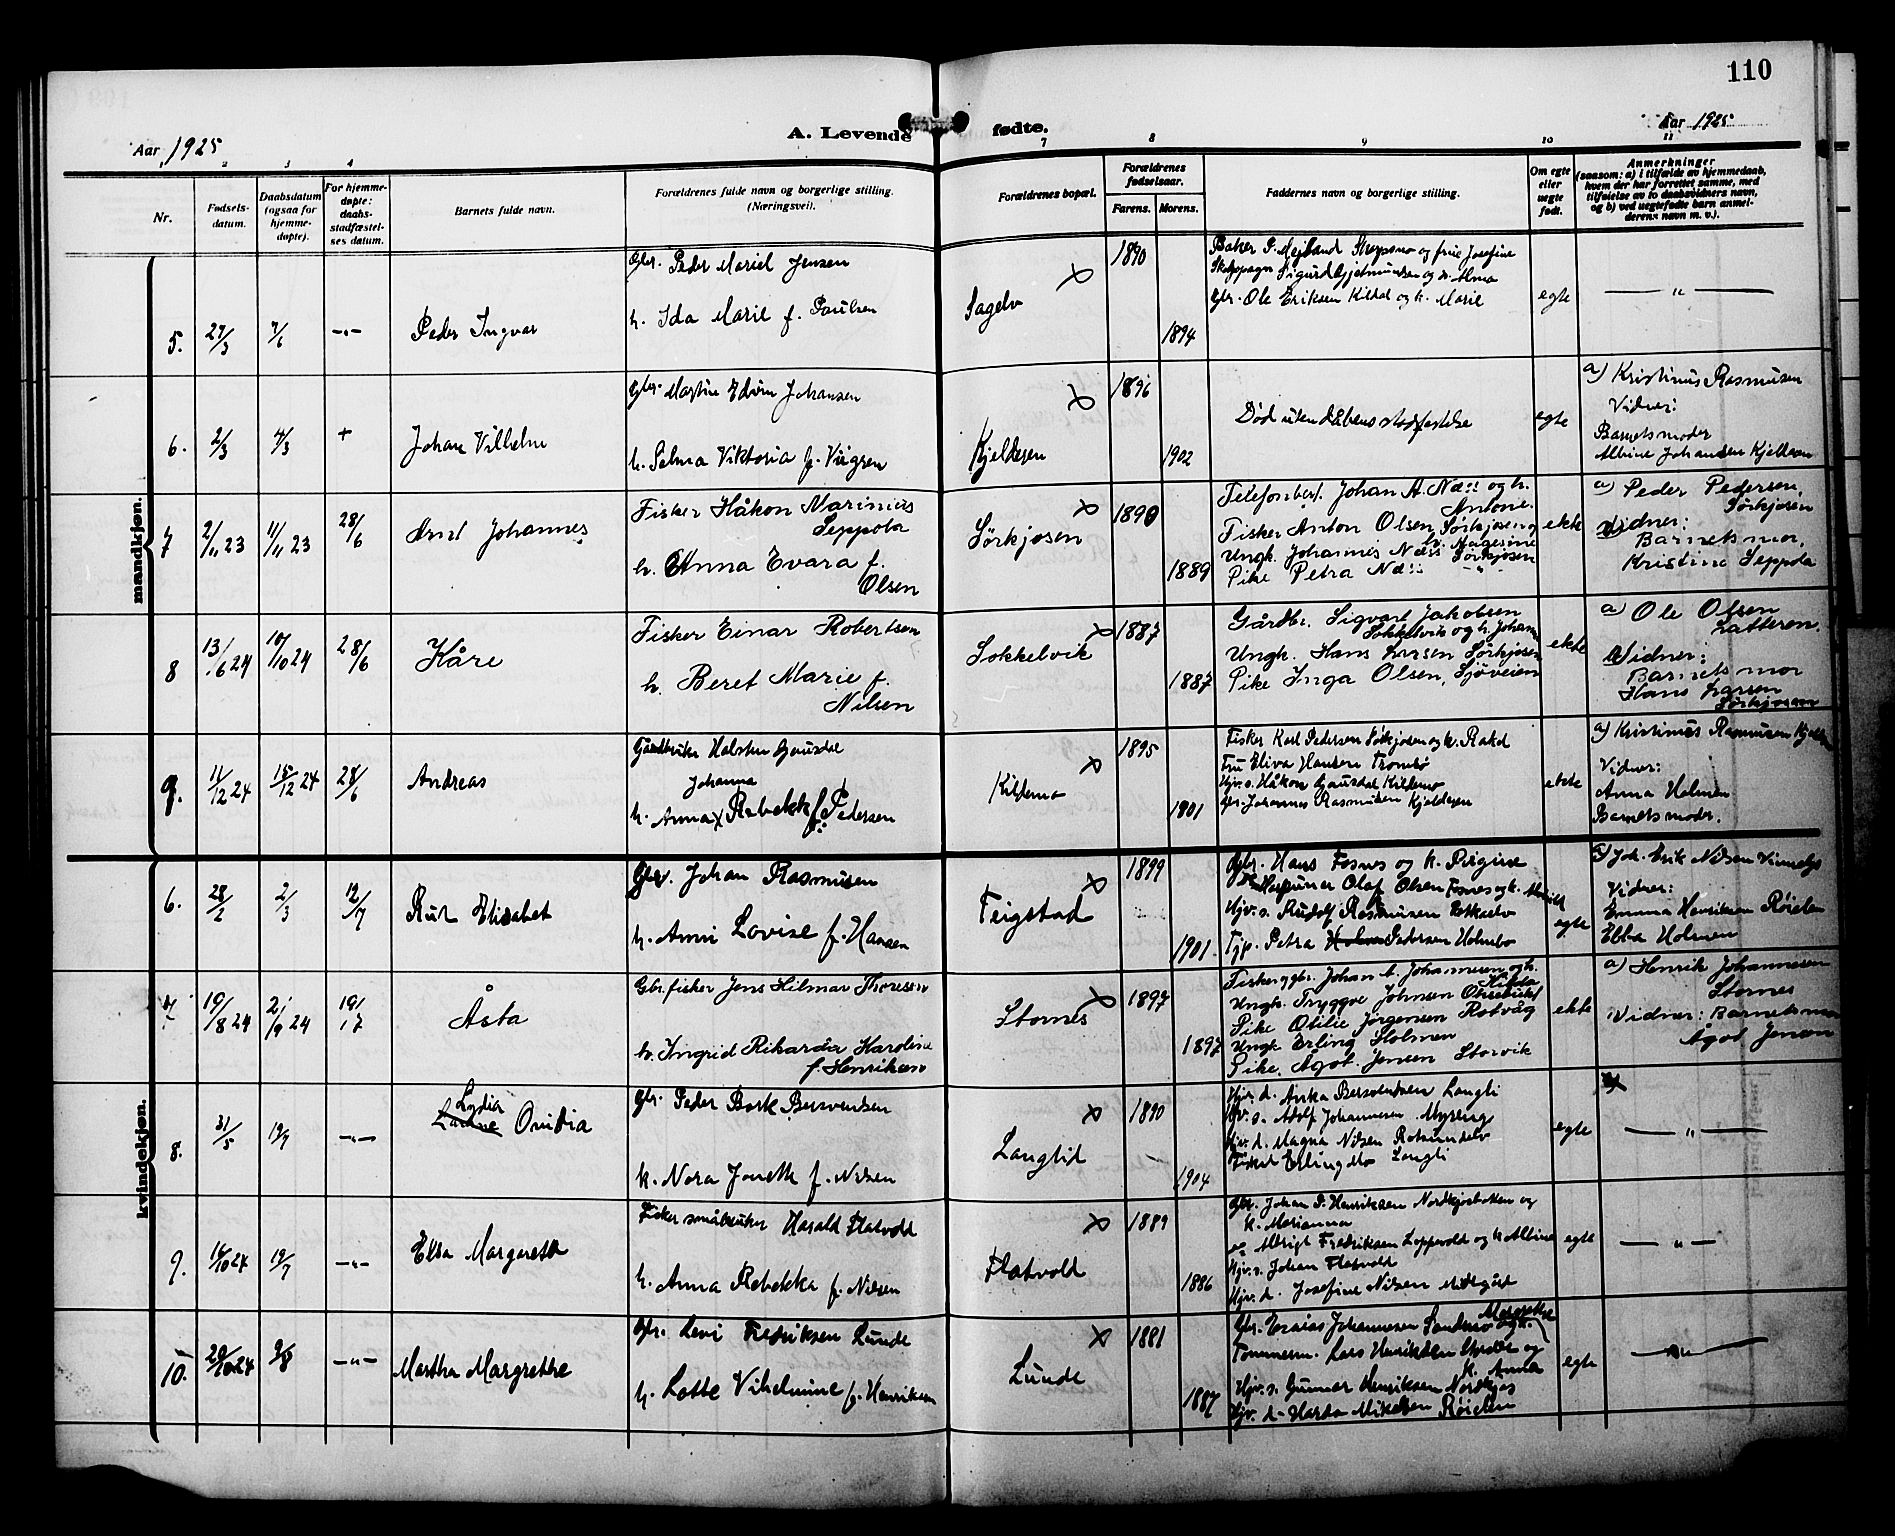 110
A. Levende fødte.
Aar 1925
Aar 1925
2 3 4 7 8 9 10 11
Nr.
Fødsels-
datum.
Daabsdatum
(ogsaa for
hjemme-
døpte).
For hjemme-
døpte:
daabs-
stadfæstel-
ses datum.
Barnets fulde navn.
Forældrenes fulde navn og borgerlige stilling.
(Næringsvei).
Forældrenes bopæl.
Forældrenes
fødselsaar.
Farens. Morens.
Faddernes navn og borgerlige stilling.
Om egte
eller
uegte
født.
Anmerkninger
(saasom: a) i tilfælde av hjemmedaab,
hvem der har forrettet samme, med
tilføielse av to daabsvidners navn,
og b) ved uegtefødte barn anmel-
derens navn m. v.).
mandkjøn.
5. 27/3 7/6 -"- Peder Ingvar
Gbr. Peder Mariel Jensen
h. Ida Marie f. Paulsen
Sagelv
1890
1894
Baker P. Mejland Storsnes og frue Josefine
Sigurd Gjetmundsen og h. Alma
Gbr. Ole Eriksen Kildal og h. Marie
egte
— " —
6. 2/3 4/3 + Johan Vilhelm
Gbr. Martin Edvin Johansen
h. Selma Viktoria f. Viigren
Kjelderen
1896
1902
Død uten dåbens stadfestelse
egte
a) Kristinus Rasmusen
Vidner:
Barnets moder
Albine Johansen Kjelderen
7 2/11 23 11/11 23 28/6 Arnt Johannes
Fisker Håkon Marinius
Seppola
h. Anna Evara f.
Olsen
Sørkjosen
1890
1889
Telefonbest. Johan A. Næss og h.
Antonie.
Fisker Anton Olsen, Sørkjosen og
h. Hagesine
Ungk. Johannes Næss Sørkjosen
Pike Petra Næss -"-
ekte
a) Peder Pedersen,
Sørkjosen
Vidner:
Barnets mor,
Kristine Seppola
8 13/6 24 10/10 24 28/6 Kåre
Fisker Einar Robertsen
h. Beret Marie f.
Nilsen
Sokkelvik
1887
1887
Gårdbr. Sigvart Jakobsen
Sokkelvik og h. Johanne
Ungk. Hans Larsen Sørkjosen
Pike Inga Olsen, Sjøveien
ekte
a) Ole Olsen
Latteren.
Vidner:
Barnets mor
Hans Larsen
Sørkjosen
9. 11/12 24 15/12 24 28/6 Andreas
Gårdbruker Halsten Gausdal
Johanna
h. Anna x Rebekka f. Pedersen
Kildemo
1895
1901
Fisker Karl Pedersen Sørkjosen og h. Rakel
Fru Eliva Hansen Tromsø
Hjv. s. Håkon Gausdal Kildemo
Gbr. Johannes Rasmusen Kjelderen
ekte
a) Kristinus Rasmusen Kjelderen
Vidner:
Anna Holmen
Barnets moder.
kvindekjøn.
6. 28/2 2/3 12/7 Rut Elisabet
Gbr. Johan Rasmusen
h. Anni Lovise f. Hansen
Feigstad
1899
1901
Gbr. Hans Fosnes og h. Birgine
Olaf Olsen Fosnes og h.
Hjv. s. Rudolf Rasmusen
Tjp. Petra Pedersen Holmbo
egte
a) Joh. Erik Nilsen
Vidner:
Emma Henriksen Røielen
Ebba Holmen
7. 19/8 24 21/9 24 19/7 Åsta
Gbr. fisker Jens Hilmar Thoresen
h. Ingrid Rikarda Karoline
f. Henriksen
Stornes
1897
1897
Fisker og gbr. Johan A. Johannesen og h.
Hilda
Ungk. Tryggve Johnsen
Pike Otilie Jørgensen Rotvåg
Ungk. Erling Holmen
Pike. Ågot Jensen Storvik
ekte
a) Henrik Johannesen
Stornes
Vidner: Barnets mor
Ågot Jensen
8. 31/5 19/7 -"- Lydia
Ovidia
Gbr. Peder Bork Bersvendsen
h. Nora Jonette f. Nilsen
Langlid
1890
1904
Hjv. d. Anka Bersvendsen Langli
Hjv. s. Adolf Johannesen Myreng
Hjv. d. Magna Nilsen Rotsundelv
Fisker Erling Mo Langli
egte
— " —
9. 16/10 24 19/7 -"- Elsa Margarethe
Fisker småbruker Harald Flatvold
h. Anna Rebekka f. Nilsen
Flatvold
1889
1886
Gbr. Johan P. Henriksen Nordkjosbotten og
h. Marianna
Albrigt Fredriksen Loppevold og h. Albine
Hjv. s. Johan Flatvold
Hjv. d. Josefine Nilsen
egte
— " —
10. 20/10 24 9/8 -"- Martha Margrethe
Gbr. Levi Fredriksen Lunde
h. Lotte Vilhelmine f. Henriksen
Lunde
1881
1887
Gbr. Esaias Johannesen Sandmo og h. Margrethe
Tømmerm. Lars Henriksen og
h. Anna
Hjv. s. Gunnar Henriksen Nordkjos
Hjv. d. Harda Mikelsen Røielen
egte
— " —